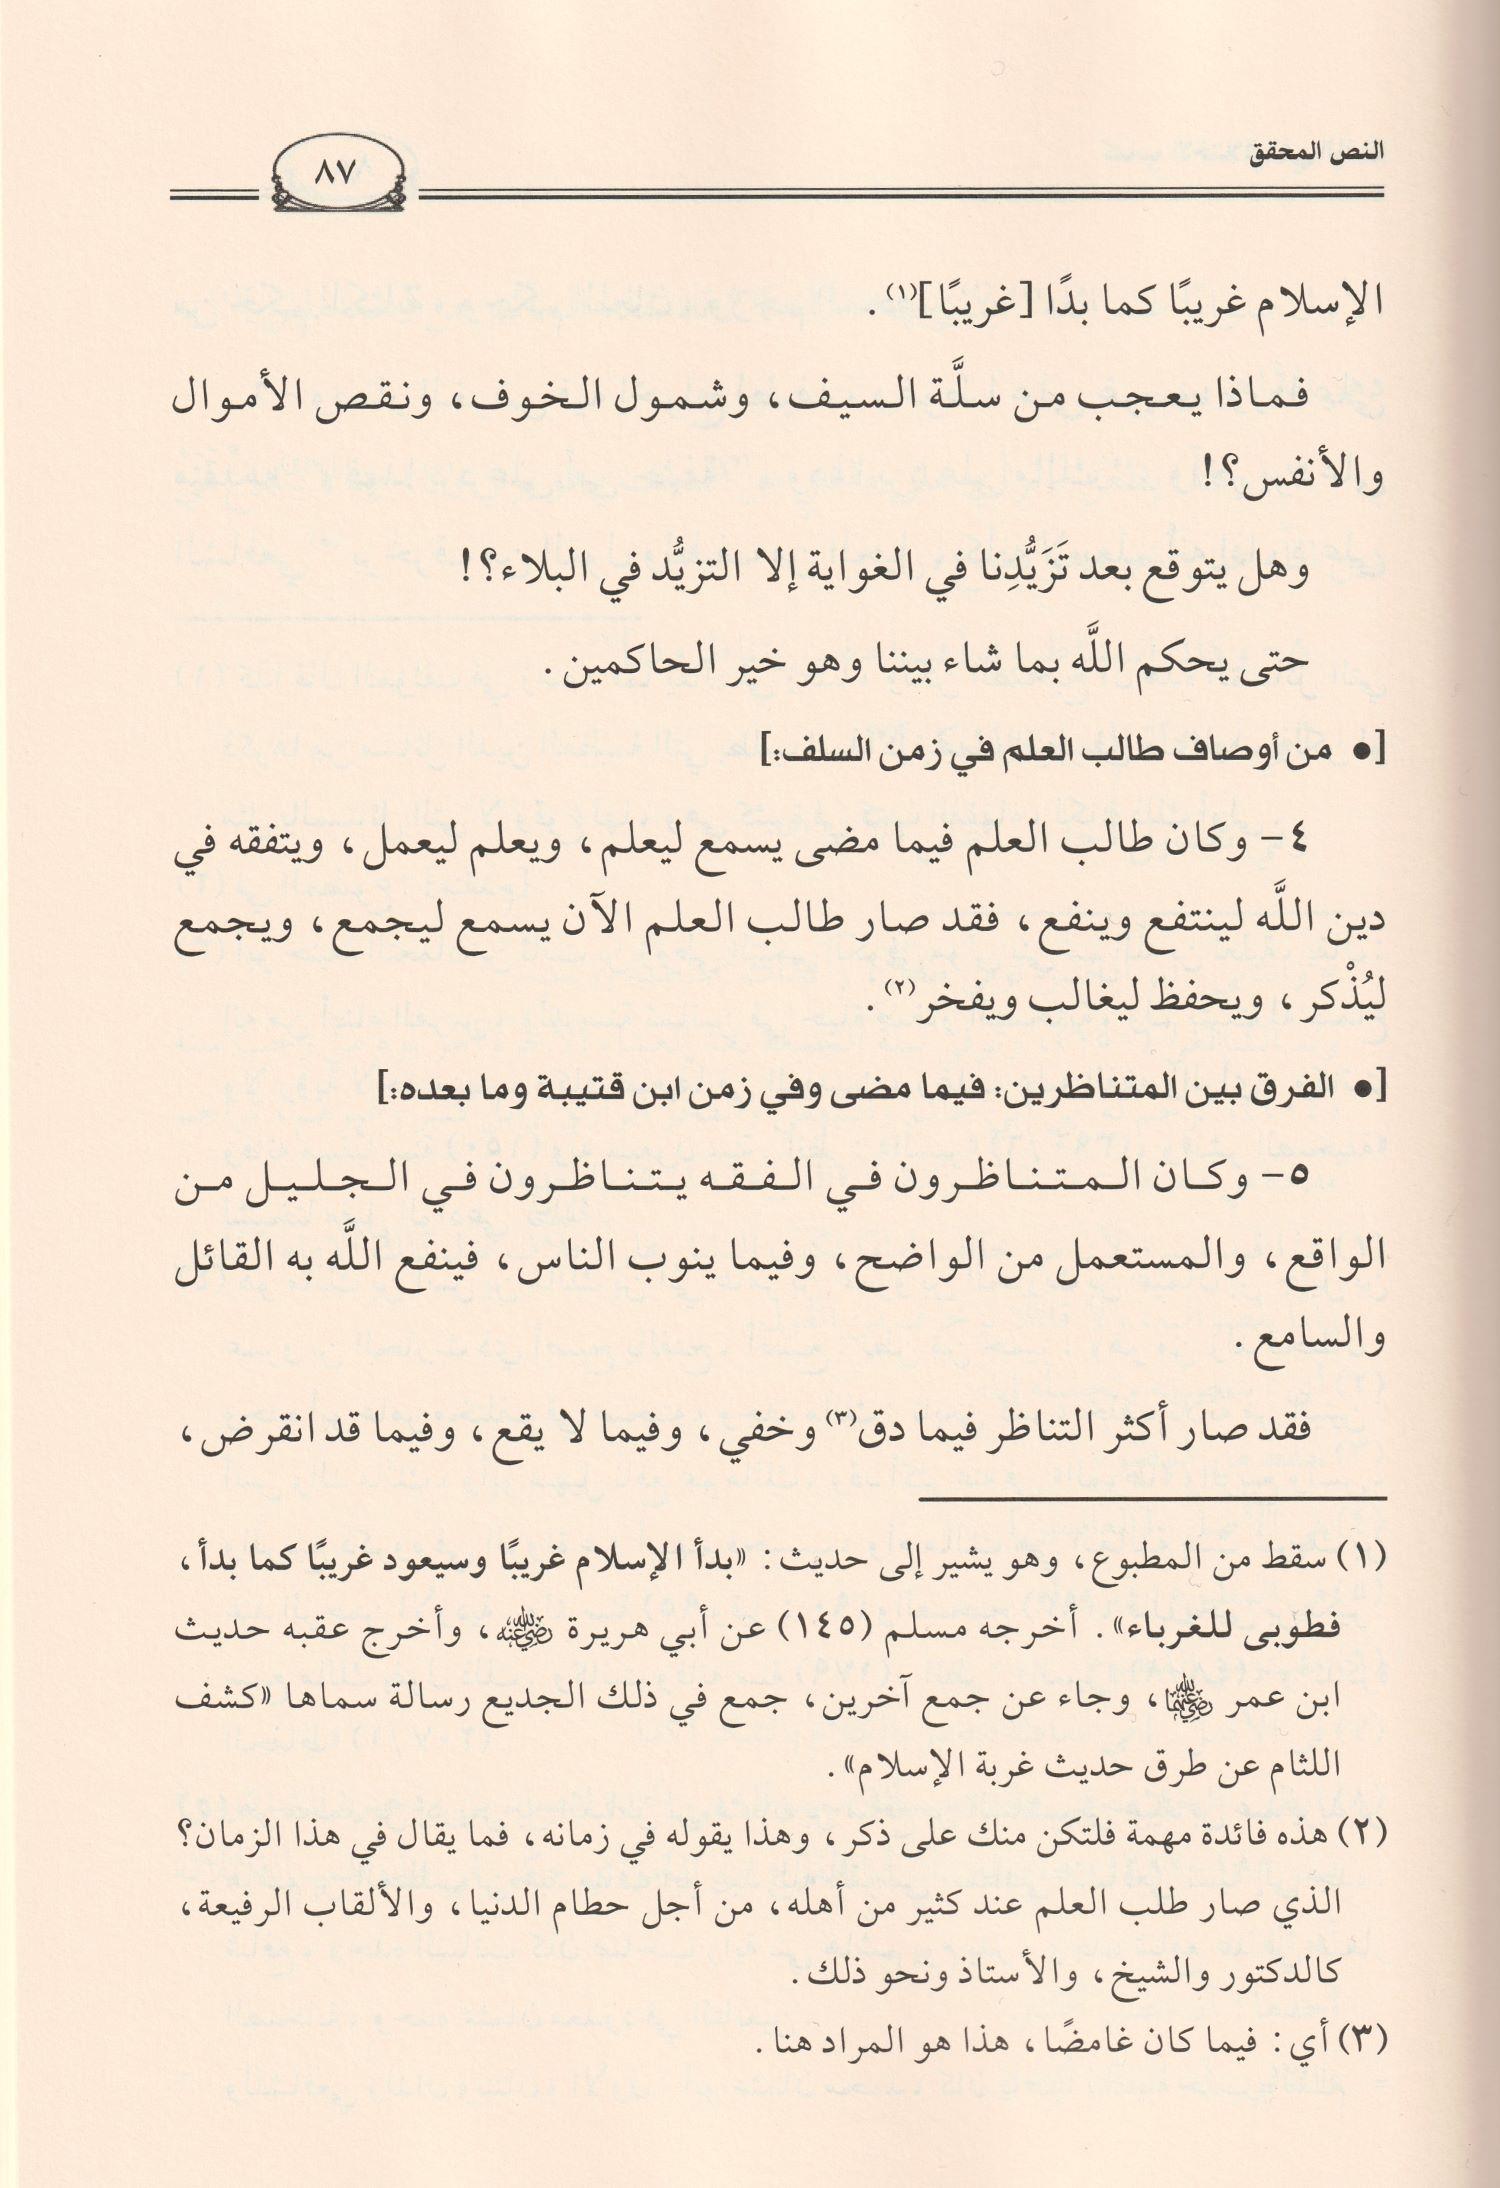 النص المحقق
٨٧
الإسلام غريبًا كما بدًا [غريبًا](١).
فماذا يعجب من سلَّة السيف، وشمول الخوف، ونقص الأموال
والأنفس؟!
وهل يتوقع بعد تَزَيُّدِنا في الغواية إلا التزيُّد في البلاء؟!
حتى يحكم اللَّه بما شاء بيننا وهو خير الحاكمين.
[● من أوصاف طالب العلم في زمن السلف:]
٤- وكان طالب العلم فيما مضى يسمع ليعلم، ويعلم ليعمل، ويتفقه في
دين اللَّه لينتفع وينفع، فقد صار طالب العلم الآن يسمع ليجمع، ويجمع
ليُذْكر، ويحفظ ليغالب ويفخر(٢).
[● الفرق بين المتناظرين: فيما مضى وفي زمن ابن قتيبة وما بعده:]
٥- وكان المتناظرون في الفقه يتناظرون في الجليل من
الواقع، والمستعمل من الواضح، وفيما ينوب الناس، فينفع اللَّه به القائل
والسامع.
فقد صار أكثر التناظر فيما دق(٣) وخفي، وفيما لا يقع، وفيما قد انقرض،
(١) سقط من المطبوع، وهو يشير إلى حديث: «بدأ الإسلام غريبًا وسيعود غريبًا كما بدأ،
فطوبى للغرباء». أخرجه مسلم (١٤٥) عن أبي هريرة رضي الله عنه، وأخرج عقبه حديث
ابن عمر رضي الله عنهما، وجاء عن جمع آخرين، جمع في ذلك الجديع رسالة سماها «كشف
اللثام عن طرق حديث غربة الإسلام».
(٢) هذه فائدة مهمة فلتكن منك على ذكر، وهذا يقوله في زمانه، فما يقال في هذا الزمان؟
الذي صار طلب العلم عند كثير من أهله، من أجل حطام الدنيا، والألقاب الرفيعة،
كالدكتور والشيخ، والأستاذ ونحو ذلك.
(٣) أي: فيما كان غامضًا، هذا هو المراد هنا.